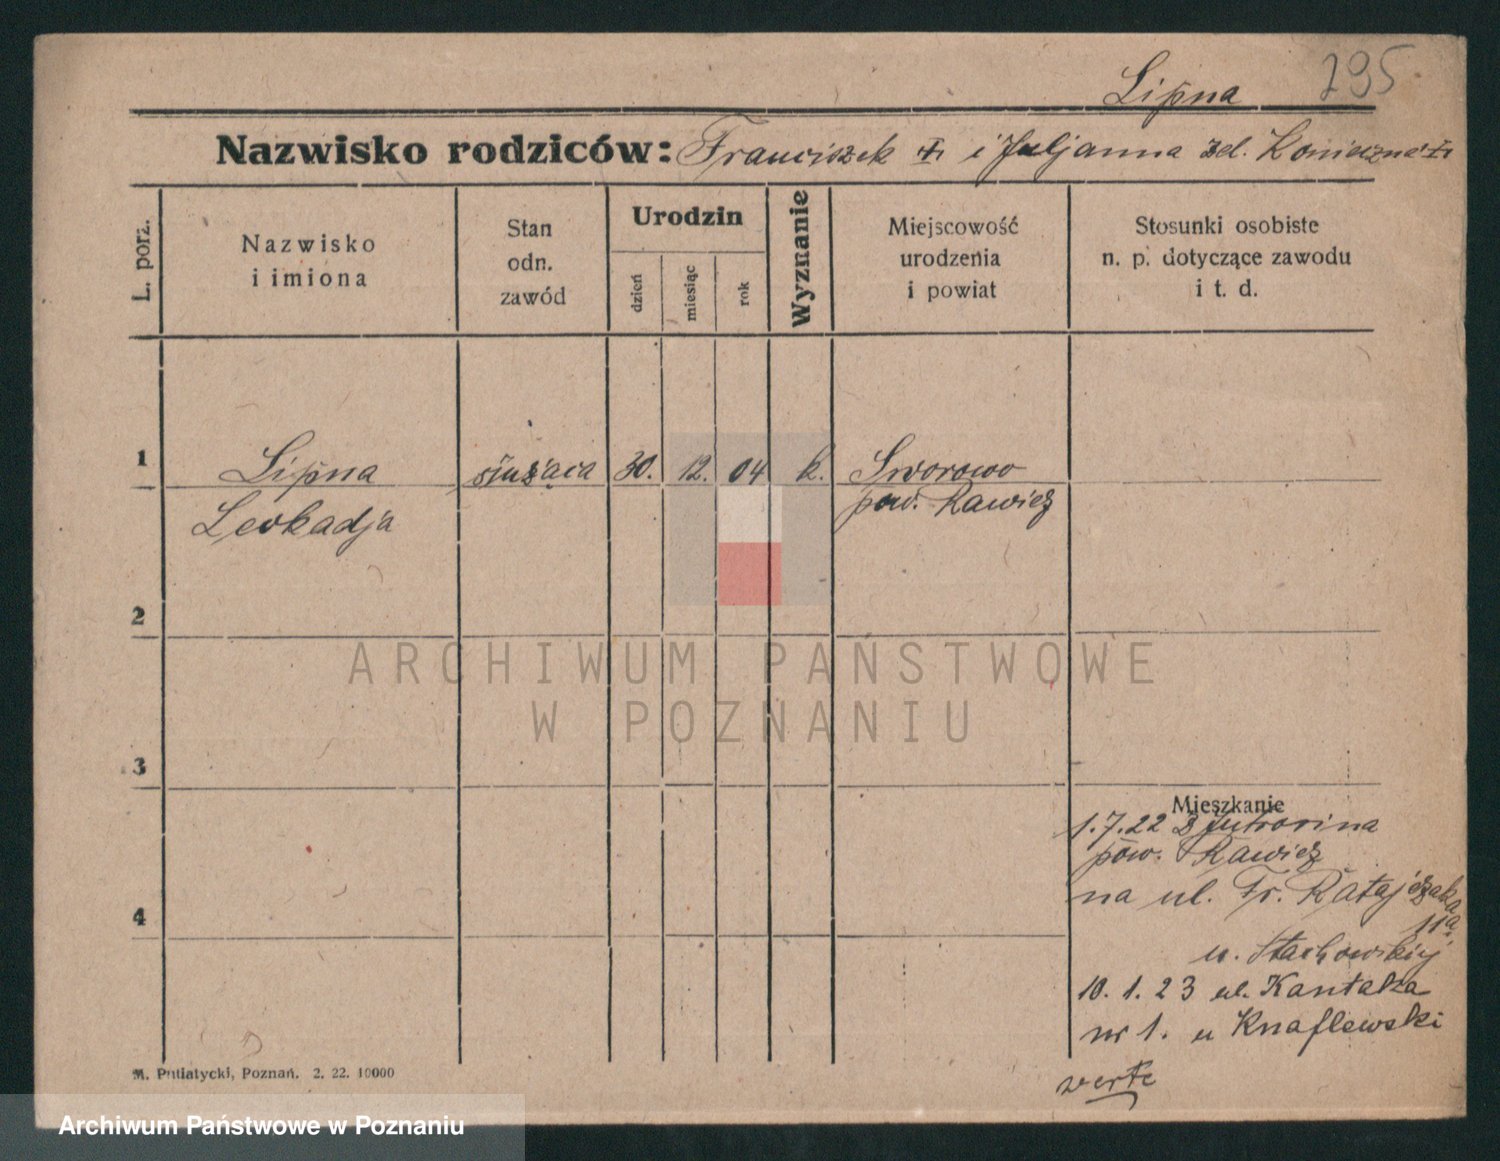 Lipna 295
Nazwisko rodziców: Franciszek i Juljanna zd. Konieczna
L. porz.
Nazwisko
i imiona
Stan
odn.
zawód
Urodzin
dzień
miesiąc
rok
Wyznanie
Miejscowość
urodzenia
i powiat
Stosunki osobiste
n. p. dotyczące zawodu
i t. d.
1 Lipna służąca 30. 12. 04 k. Sworowo
Leokadja pow. Rawicz
2
ARCHIWUM PAŃSTWOWE
W POZNANIU
3
Mieszkanie
1.7.22 z Jutrosina
pow. Rawicz
4
na ul. Fr. Ratajczaka
11a.
u. Stachowskiej
10. 1. 23 ul. Kantaka
nr 1. u Knaflewski
verte
M. Putiatycki, Poznań. 2. 22. 10000
Archiwum Państwowe w Poznaniu